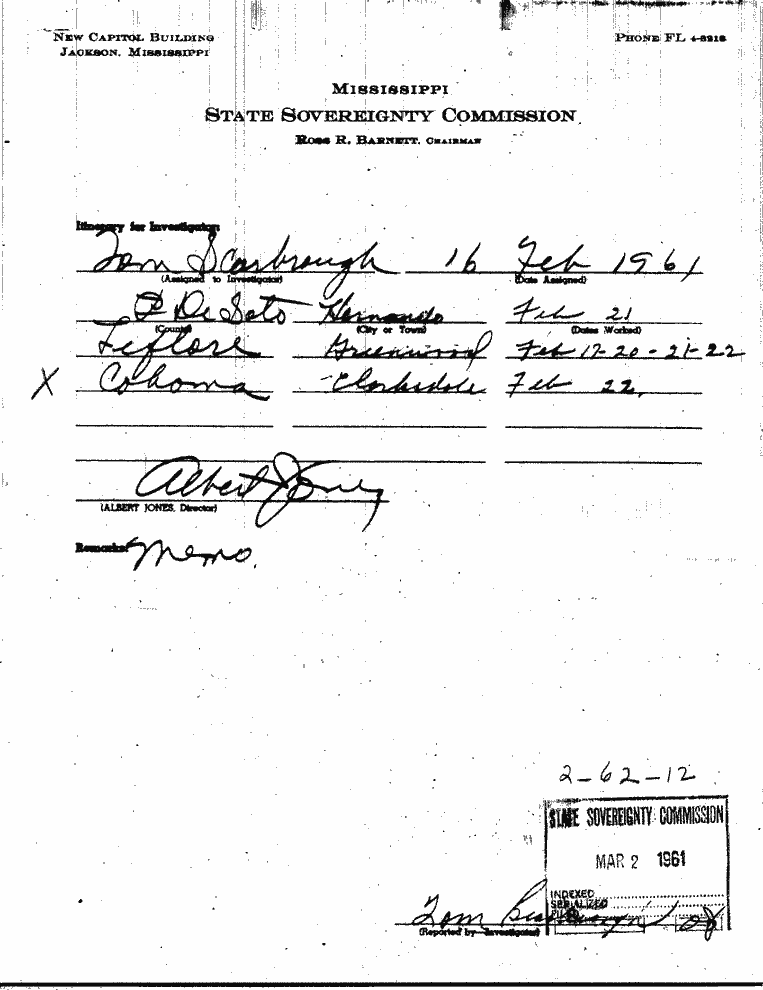 NEW CAPITOL BUILDING
JACKSON, MISSISSIPPI
PHONE FL 4-3218
MISSISSIPPI
STATE SOVEREIGNTY COMMISSION
ROSS R. BARNETT, CHAIRMAN
Itinerary for Investigator:
Tom Scarbrough 16 Feb 1961
(Assigned to Investigator) (Date Assigned)
De Soto Hernando Feb 21
(County) (City or Town) (Dates Worked)
Leflore Greenwood Feb 17-20-21-22
X Cohoma Clarksdale Feb 22,
Albert Jones
(ALBERT JONES, Director)
Remarks: Memo.
2-62-12
STATE SOVEREIGNTY COMMISSION
MAR 2 1961
INDEXED
SERIALIZED
FILED
Tom Scarbrough
(Reported by Investigator)